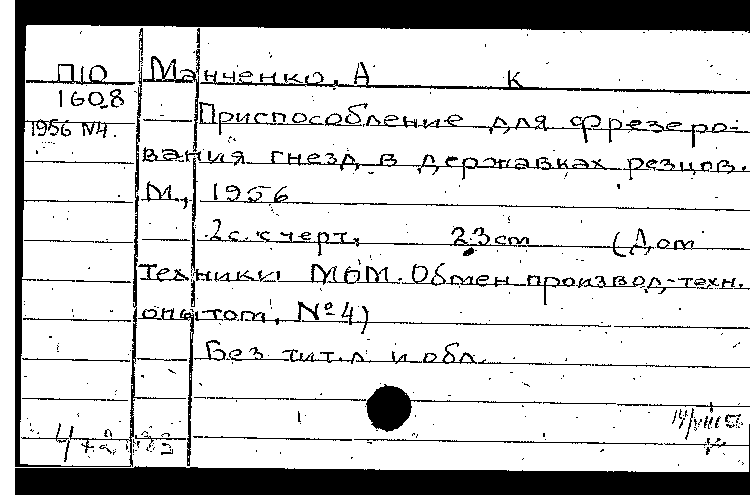 П10
1608
1956 N4.
Манченко, А К
Приспособление для фрезеро-
вания гнезд в державках резцов.
М., 1956
2 с. с черт. 23 cm (Дом
техники МОМ. Обмен производ.-техн.
опытом, № 4)
Без тит. л. и обл.
14/VIII 56